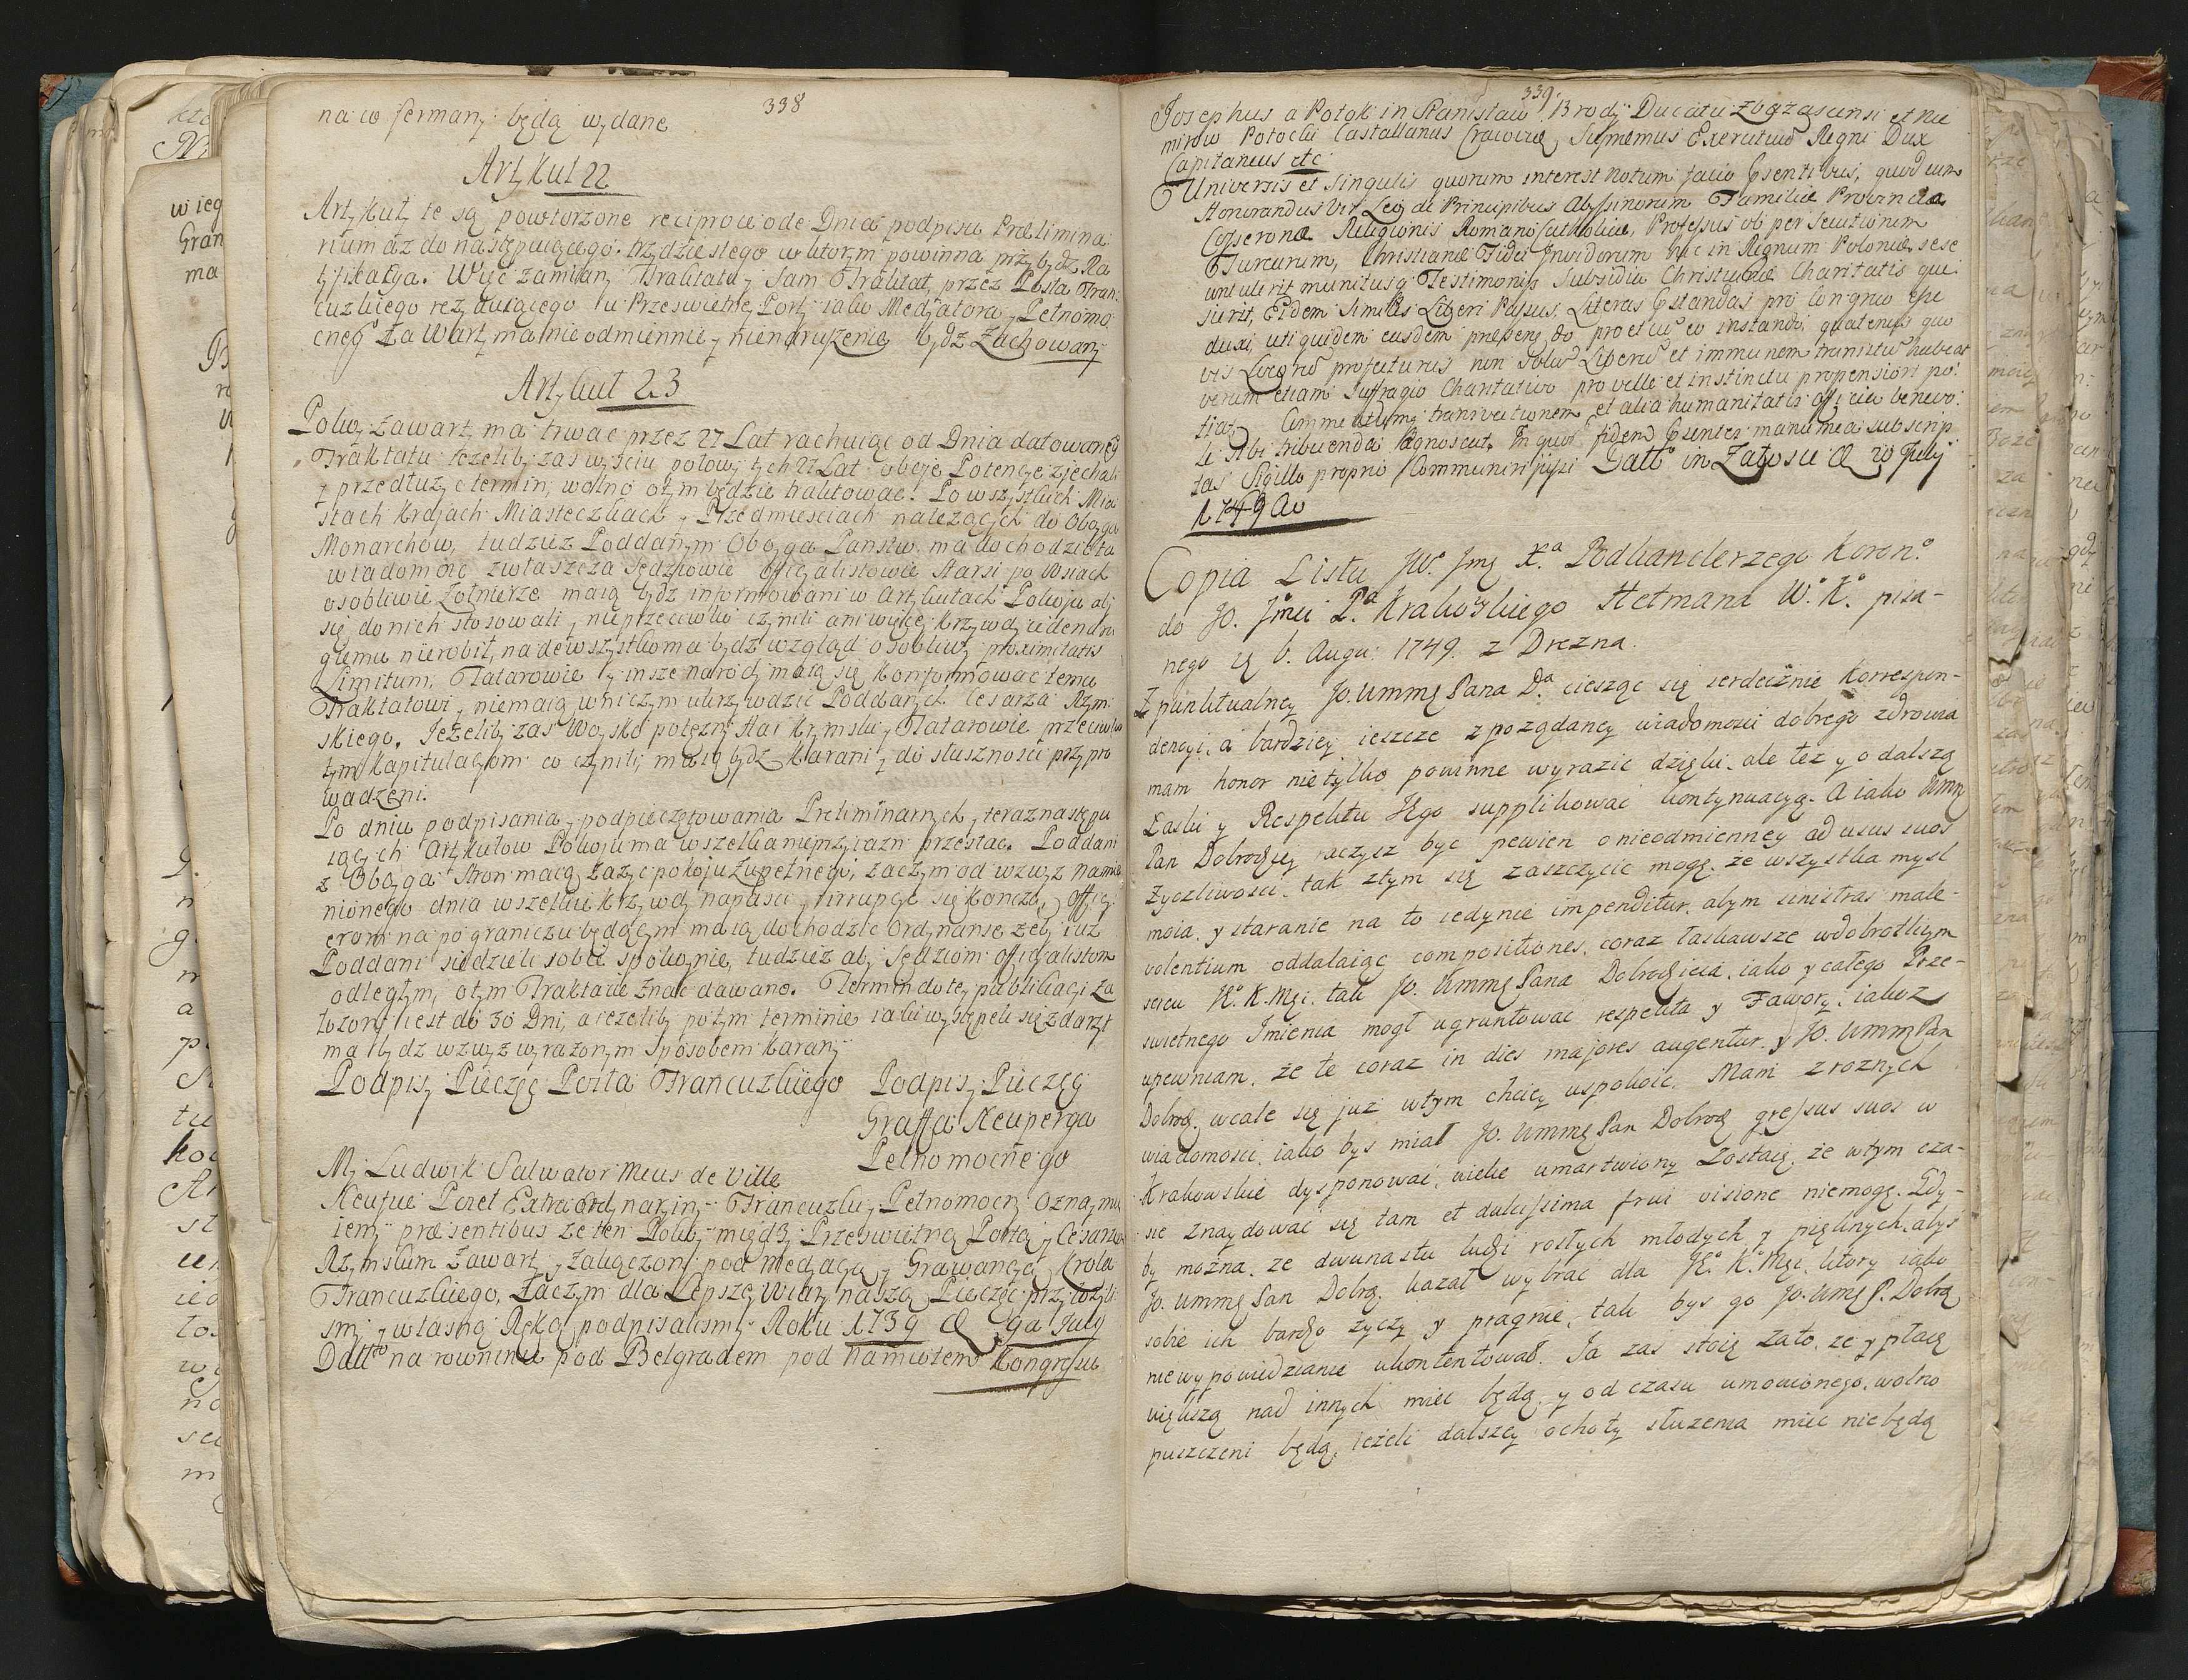 338
na co fermany będą wydane
Artykuł 22
Artykuły te są powtorzone reciproce ode Dnia podpisu Prælimina
rium az do następuiącego trzydziestego w ktorym powinna przybydz Ra
tyfikacya. Więc zamiany Traktatu y sam Traktat przez Posła Fran
cuzkiego rezyduiącego u Przeswietney Porty iako Medyatora y Pełnomo
cneg° zawarty ma nieodmiennie y nienaruszenie bydz zachowany
Artykuł 23
Pokoy zawarty ma trwac przez 27 Lat rachuiąc od Dnia datowaney
Traktatu Iezeliby zas wyisciu połowy tych 27 Lat obcje Potencye zjechali
y przedłuzyc termin, wolno o tym będzie traktowac. Po wszystkich Mia
stach Krajach Miasteczkach y Przedmiesciach nalezących do Oboyga
Monarchow, tudziez Poddanym Oboyga Panstw ma dochodzic ta
wiadomosc zwłaszcza Sędziowie Officyalistowie Starsi po Wsiach
osobliwie Zołnierze maią bydz informowani w Artykułach Pokoju aby
się do nich stosowali y nieprzeciwko czynili ani więcey krzywdy ieden dru
giemu nierobił, nadewszystko ma bydz wzgląd osobliwy proximitatis
Limitum, Tatarowie y insze narody maią się konformowac temu
Traktatowi y niemaią wniczym ukrzywdzic Poddanych Cesarza Rzym
skiego. Jezeliby zas Woysko potęzny Han Krymski y Tatarowie przeciwko
tym kapitulacyom co czynili, maią bydz karani y do słusznosci przypro
wadzeni.
Po dniu podpisania y podpieczętowania Preliminarnych y teraz nastepu
iących Artykułow Pokoju ma wszelka nieprzyiazn przestac. Poddani
z Oboyga Stron maią zazyc pokoju zupełnego, zaczym od wzwyz namie
nionego dnia wszelkie krzywdy napasci y irrupcye się konczą, Offcy
erom na pograniczu będącym maią dochodzic Ordynanse zeby iuz
Poddani siedzieli sobie spokoynie, tudziez aby Sędziom officyalistom
odległym, o tym Traktacie znac dawano. Termin do tey publikacyi za
łozony iest do 30 Dni, a iezeliby po tym terminie iaki występek się zdarzył
ma bydz wzwyz wyrazonym sposobem karany
Podpisy Pieczęc Posła Francuzkiego Podpisy Pieczęc
Graffa Neuperga
Pełnomocnego
My Ludwik Salwator Meus de Ville
Neufue Poseł Extraordynaryiny Francuzki y Pełnomocny oznaymu
iemy præsentibus ze ten Pokoy między Przeswietną Portą y Cesarzem
Rzymskim zawarty y zakączony pod Medyacyą y Gwarancyą Krola
Francuzkiego, zaczym dla Lepszey Wiary naszą Pieczęc przyłozyli
smy y własną Ręką podpisalismy Roku 1739 d 9a July
Datt° na rowninie pod Belgradem pod namiotem Kongressu
339
Josephus a Potok in Stanisław Brody Ducatu Zbarazsensi et Nie
mirow Potocki Castallanus Cracoviæ, Supremus Exercituū Regni Dux
Capitaneus etc
Universis et singulis quorum interest Notum facio Psentibus, quod cum
Honorandus Vir Leo de Principibus Abyssinorum Familiæ Provincia
Religionis Romano Catholicæ, Professus ob persecutionem
Turcarum, Christianæ Fidei Invidorum hic in Regnum Poloniæ sese
contulerit munitusq Testimoniis Subsidia Christianæ Charitatis quæ
sierit, Eidem similes Liberi Passus Literas Pstandas pro Congruo esse
duxi, uti quidem eusdem præsens do pro et cū eo instando, quatenus quo
vis Locorū profecturus non solū Liberū et immunem transitū habeat
verum etiam Suffragio Charitativo pro velle et instinctu propensiori po
tiat, Commeatumq transvectionem et alia humanitatis officia benevo
le sibi tribuenda agnoscat. In quor fidem Psentes manu mea subscrip
tas Sigillo proprio Communiri jussi Datt° in Załosiu d 20 July
1749 Ao
Copia Listu JW. Jmę Xa Podkanclerzego Koron°
do Jo. Jmci Pa Krakowskiego Hetmana W. K. pisa-
nego dę 6. Augu: 1749. z Drezna.
Z punktualney Jo. Ummę Pana Da ciesząc się serdecznie Korrespon-
dencyi, a bardziey ieszcze z poządaney wiadomosci dobrego zdrowia
mam honor nie tylko powinne wyrazic dzięki, ale tez y o dalszą
Łaski y Respektu Jego supplikowac kontynuacyą. A iako Umę
Pan Dobrodzej raczysz byc pewien o nieodmienney ad usus suos
zyczliwosci, tak ztym się zaszczycic mogę, ze wszystka mysl
moia, y staranie na to iedynie impenditur, abym sinistras male-
volentium oddalaiąc compositiones, coraz łaskawsze wdobrotliwym
sercu Jo. K. Mci, tak Jo. Ummę Pana Dobrodzieia, iako y całego Prze-
swietnego Imienia mogł ugruntowac respekta y Fawory, iakoz
upewniam, ze te coraz in dies majores augentur, y Jo. Umm Pan
Dobrodz. wcale się juz wtym chciey uspokoic. Mam z roznych
wiadomosci, iako bys miał Jo. Ummę Pan Dobrodz gressus suos w
Krakowskie dysponowac, wielce umartwiony zostaię, ze wtym cza-
sie znaydowac się tam et dulcissima frui visione niemogę. Gdy-
by mozna, ze dwunastu ludzi rosłych młodych y pięknych, abys
Jo. Ummę Pan Dobrodz. kazał wybrac dla Jo. K. Mci, ktory iako
sobie ich bardzo zyczy y pragnie, tak bys go Jo. Umę P. Dobrodz
niewypowiedzianie ukontentował. Ja zas stoię zato, ze y płacą
większą nad innych miec będą, y od czasu umowionego, wolno
puszczeni będą, iezeli dalszey ochoty słuzenia miec niebędą